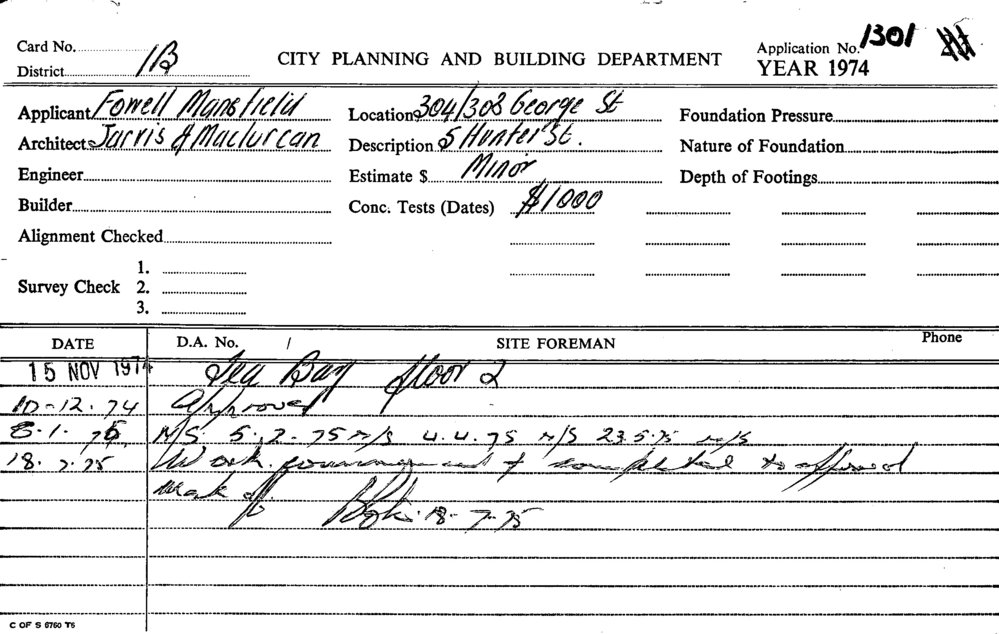 Card No.
District 1B
CITY PLANNING AND BUILDING DEPARTMENT
Application No. 1301
YEAR 1974
Applicant Fowell Mansfield
Architect Jarvis & Maclurcan
Engineer
Builder
Alignment Checked
Survey Check 1.
2.
3.
Location 304/308 George St
Description 5 Hunter St.
Estimate $ Minor
Conc. Tests (Dates) $1000
Foundation Pressure
Nature of Foundation
Depth of Footings
DATE D.A. No. / SITE FOREMAN Phone
15 NOV 1974 Tea Bay floor 2
10-12.74 Approved
8.1.75 N/S 5.2.75 N/S 4.4.75 N/S 23.5.75 N/S
18.7.75 Work completed to approval
Mark off 18-7-75
C OF S 6760 T5